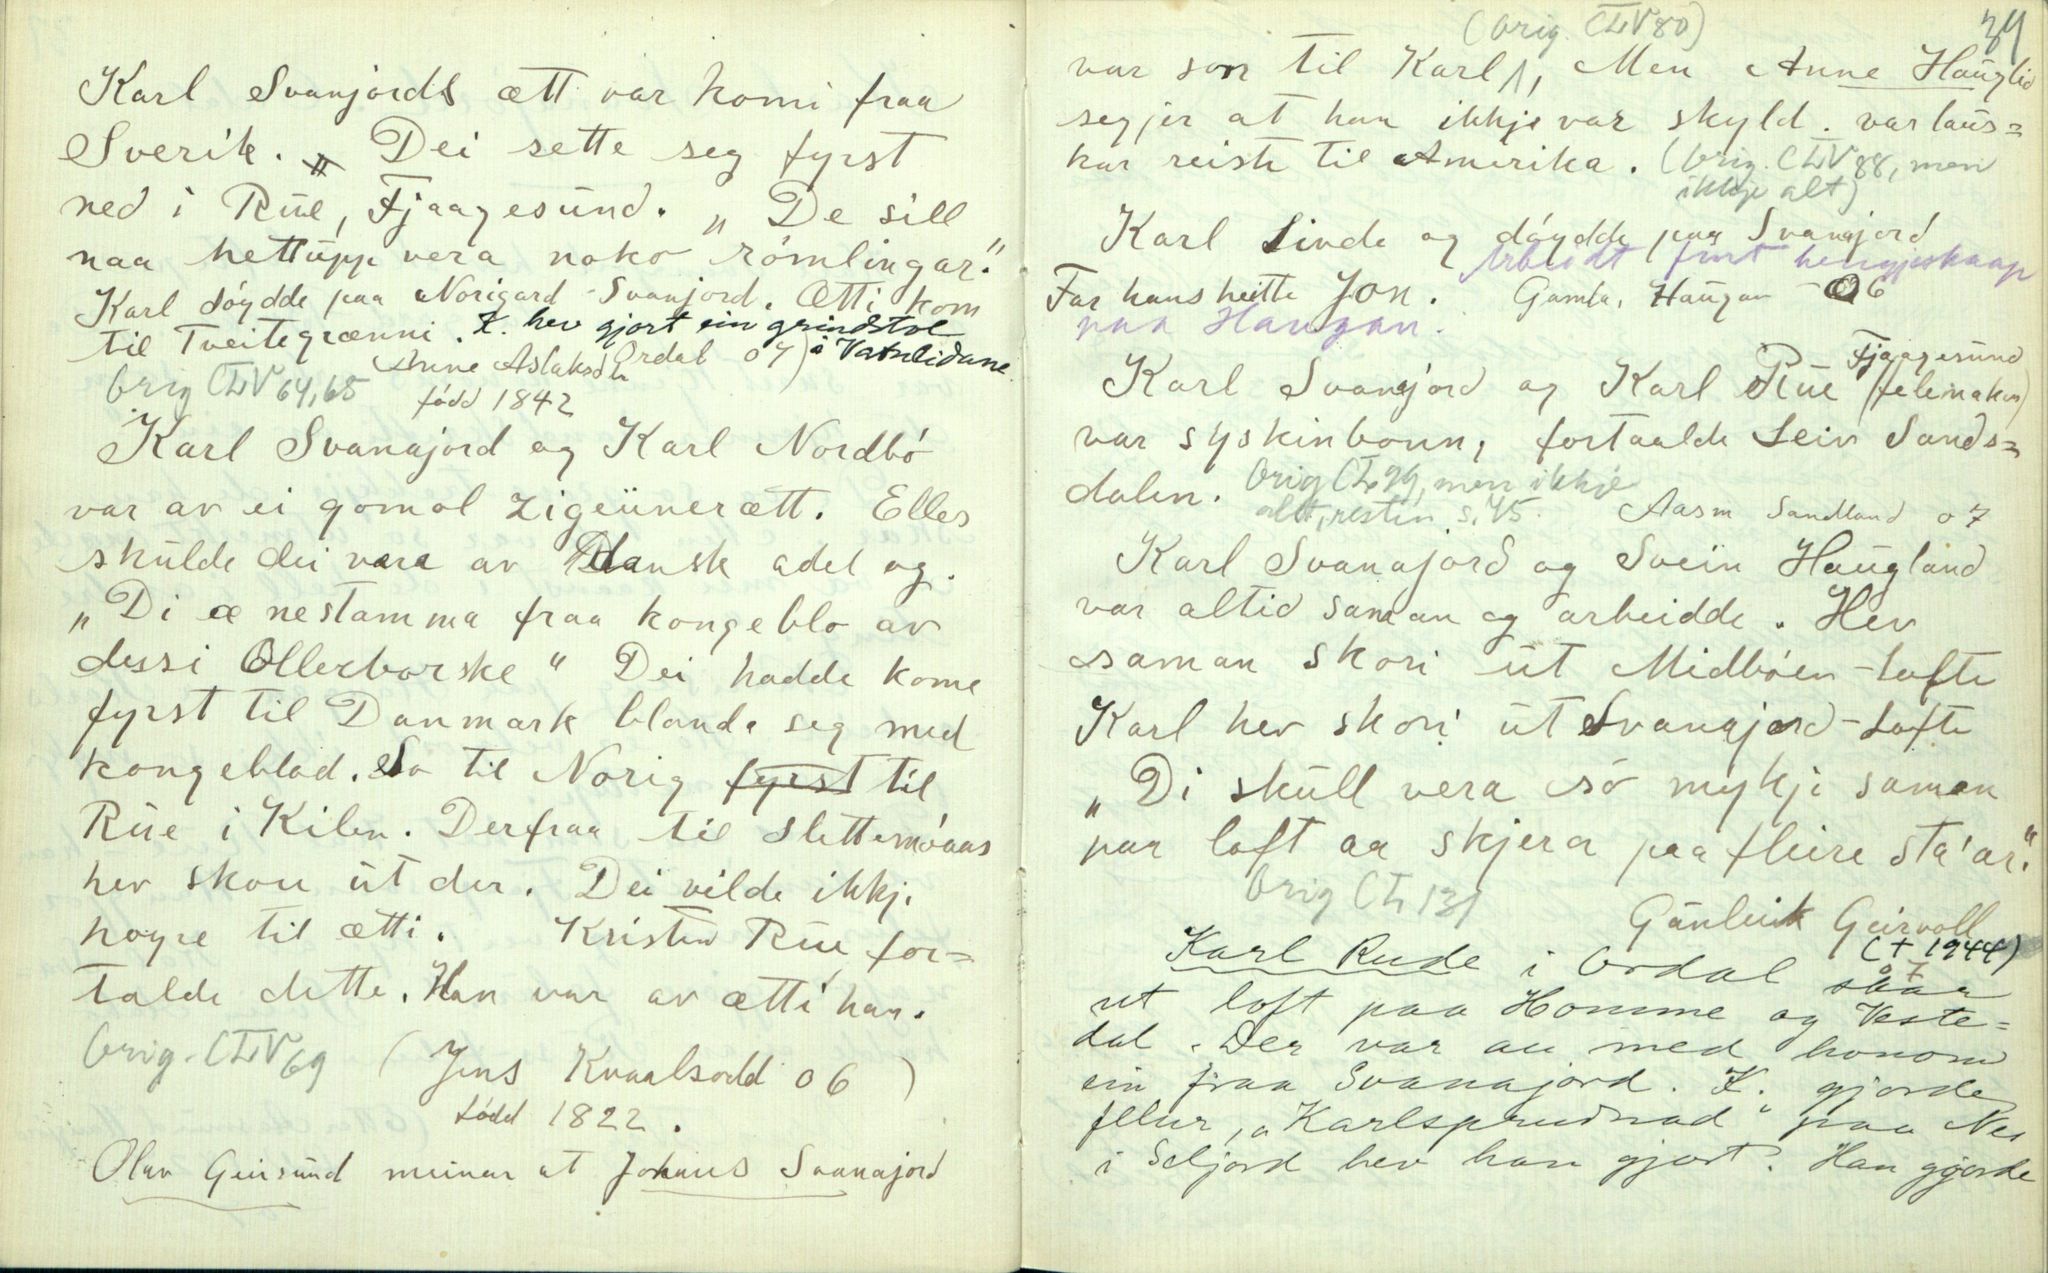 Karl Svanjords ætt var komi fraa
Sverik. „ Dei sette seg fyrst
ned i Rue, Fjaagesund. „ De sill
naa hettupp vera noko römlingar."
Karl döydde paa Norigard-Svanjord. Ætti kom
til Tveitegrænni. K. hev gjort ein grindstol
i Vatnlidane.
Anne Aslaksd. Ordal 07)
Orig CLV 64,65
född 1842
Karl Svanajord og Karl Nordbö
var av ei gomol zigeunerætt. Elles
skulde dei vara av Dansk adel og.
„Di æ nestamma fraa kongeblo av
dessi Ollerborske" Dei hadde kome
fyrst til Danmark blanda seg med
kongeblod. So til Norig fyrst til
Rue i Kilen. Derfraa til Slettemoaas
hev skore ut der. Dei vilde ikkje
høyre til ætti. Kristen Rue for=
talde dette. Han var av ætti han.
Orig. CLV 69
(Jens Kvaalsodd 06)
född 1822.
Olav Geirsund meinar at Johans Svanajord
39
(Orig. CLV 80)
var son til Karl, Men Anne Hauglid
segjer at han ikkje var skyld. var laus=
kar reiste til Amerika. (Orig. CLV 88, men
ikkje alt)
Karl Livde og döydde paa Svanajord
Arbeidt fint hengjeskaap
Far hans heitte Jon. Gamla, Haugan - 06
paa Haugan.
Karl Svanajord og Karl Rue Fjaagesund
(felemakar)
var syskinbonn, fortaalde Leiv Sands=
dalen. Orig CL 29, men ikkje
alt, resten s. 45. Aasm Sandland 07
Karl Svanajord og Svein Haugland
var altid saman og arbeidde. Hev
saman skori ut Midböen-lofte
Karl hev skori ut Svanajord-Lofte
„Di skull vera so mykje saman
paa loft aa skjera paa fleire sta'ar."
Orig CL 131
Gunleik Geirvoll
(+ 1944)
07
Karl Rude i Ordal skaar
ut loft paa Homme og Veste=
dal. Der var au med honom
ein fraa Svanajord. K. gjorde
felur, „Karlsprudnad" paa Nes
i Seljord hev han gjort. Han gjorde